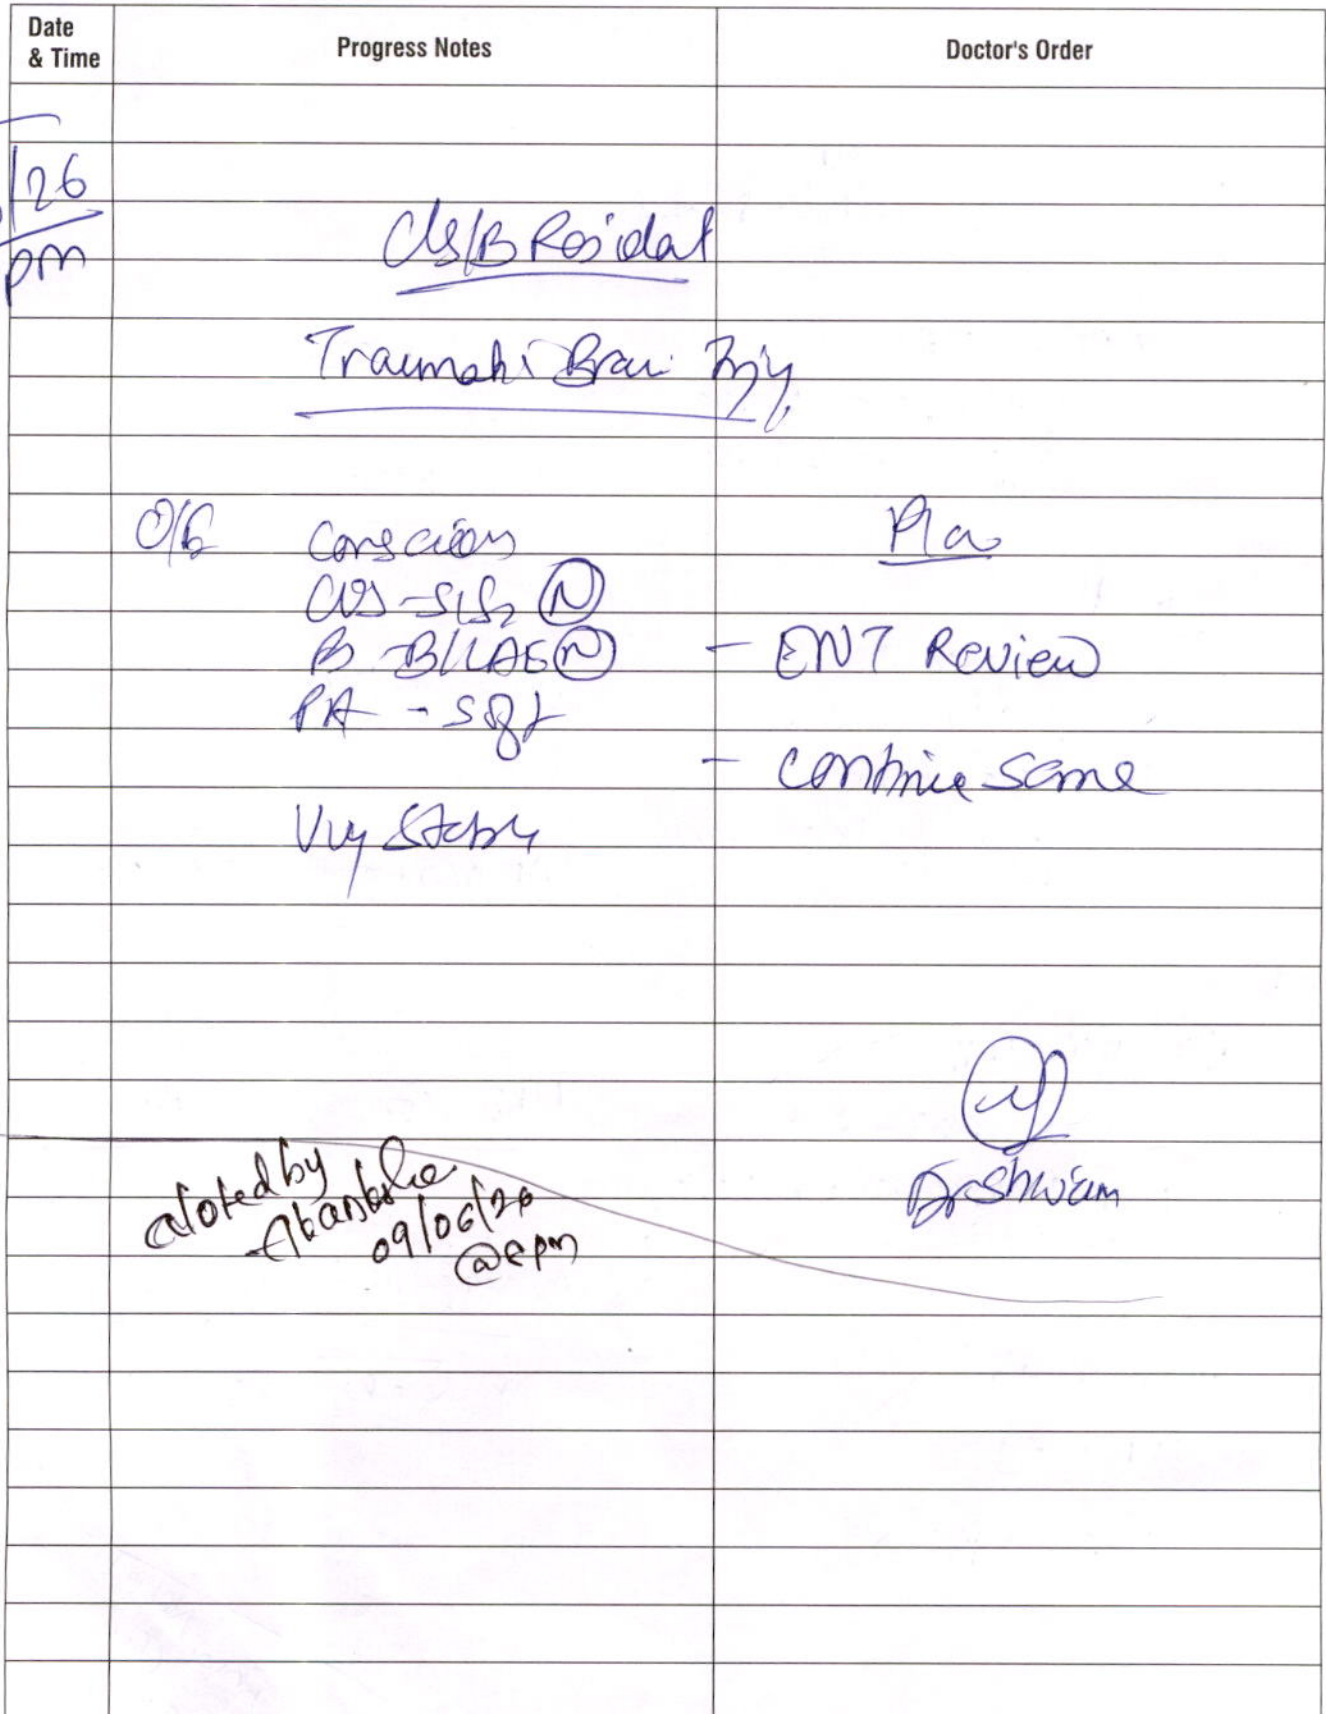 Date & Time
Progress Notes
Doctor's Order
/26
pm
C/S/B Resident
Traumatic Brain Injury
O/E Conscious
CVS - S1S2 (N)
RS - B/L AE (N)
PA - soft
Plan
- ENT Review
- Continue same
Stable
noted by
09/06/26
@ pm
Dr Shivam